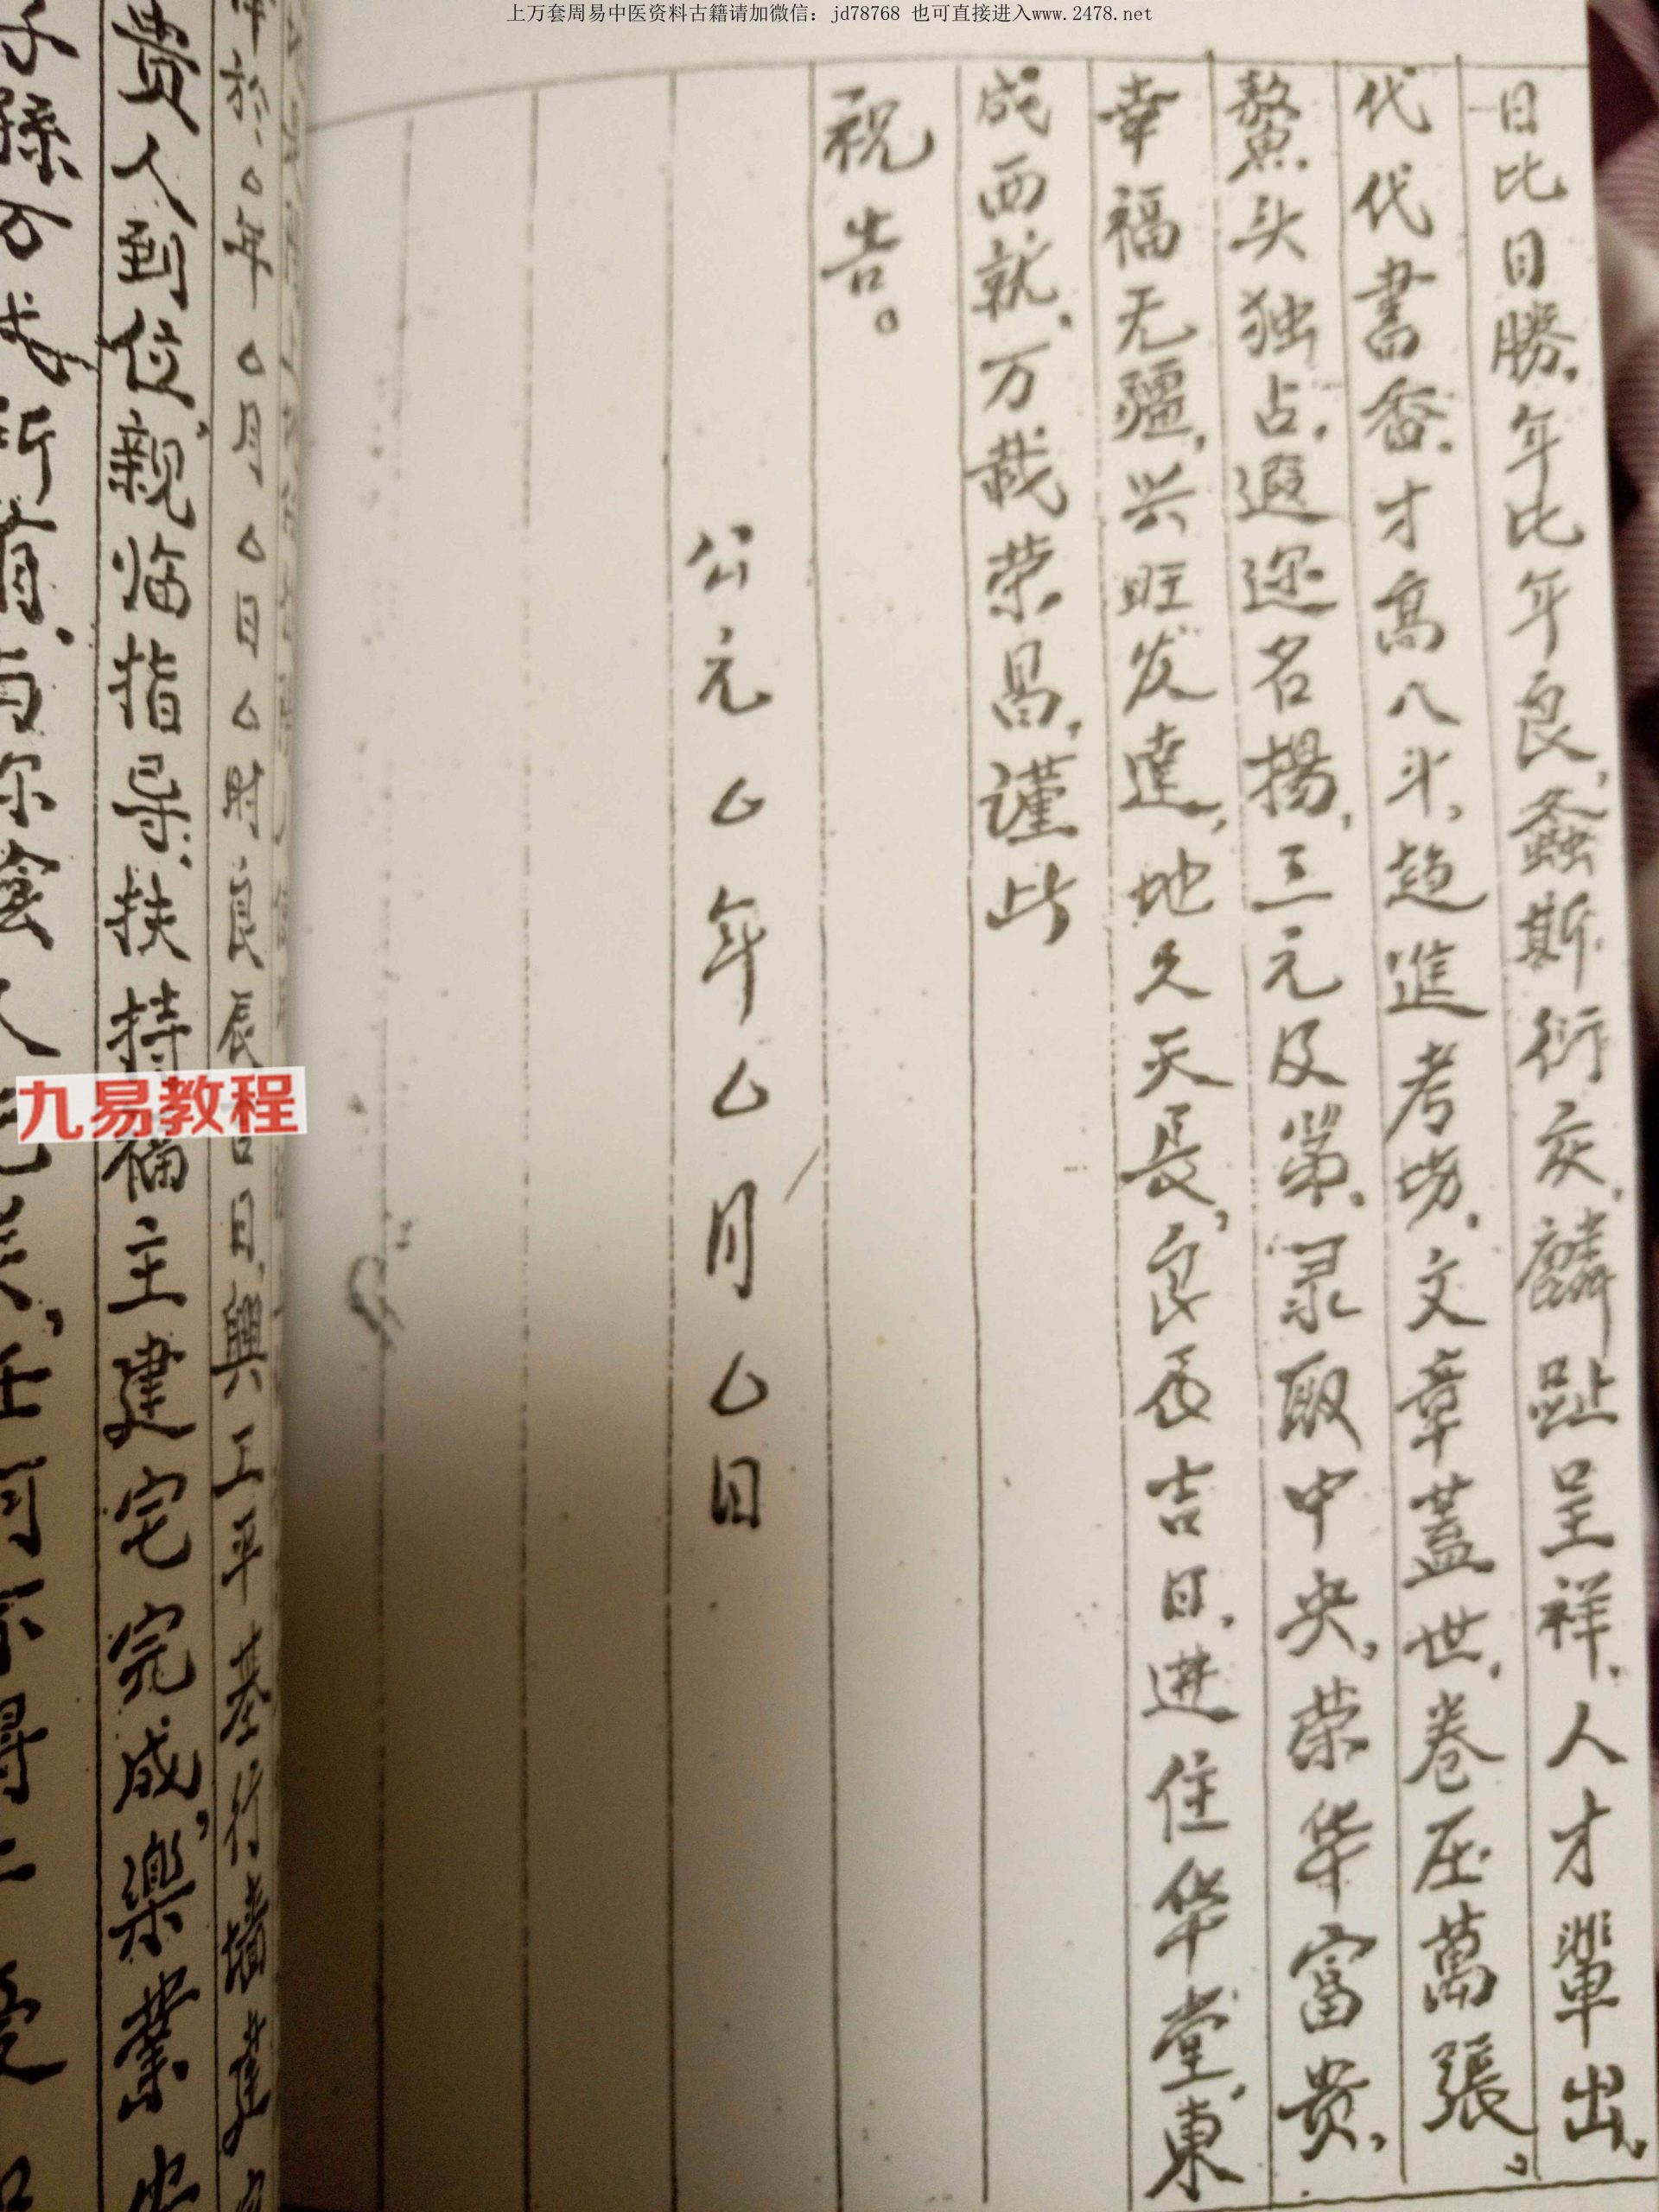 上万套周易中医资料古籍请加微信：jd78768 也可直接进入www.2478.net
日比日勝，年比年良，螽斯衍庆，麟趾呈祥，人才辈出，
代代書香，才高八斗，趋進考场，文章蓋世，卷压萬張，
鰲头独占，遐迩名揚，三元及第，录取中央，荣华富贵，
幸福无疆，兴旺发達，地久天長，良辰吉日，进住华堂，東
成西就，万载荣昌，谨此
祝告。
公元厶年厶月厶日
於○年○月○日○时良辰吉日，興工平基行墻建
貴人到位，親临指导，扶持福主建宅完成，樂業
子孫万代所有，
九易教程